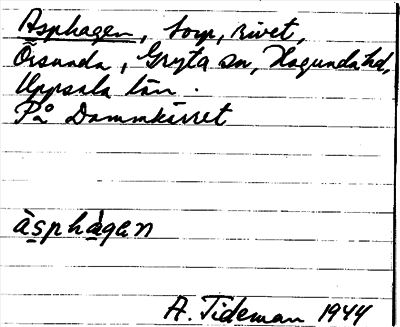 Asphagen, torp, rivet,
Örsunda, Gryta sn, Hagunda hd,
Uppsala län.
På Dammkärret
àsphàgan
A. Tideman 1944